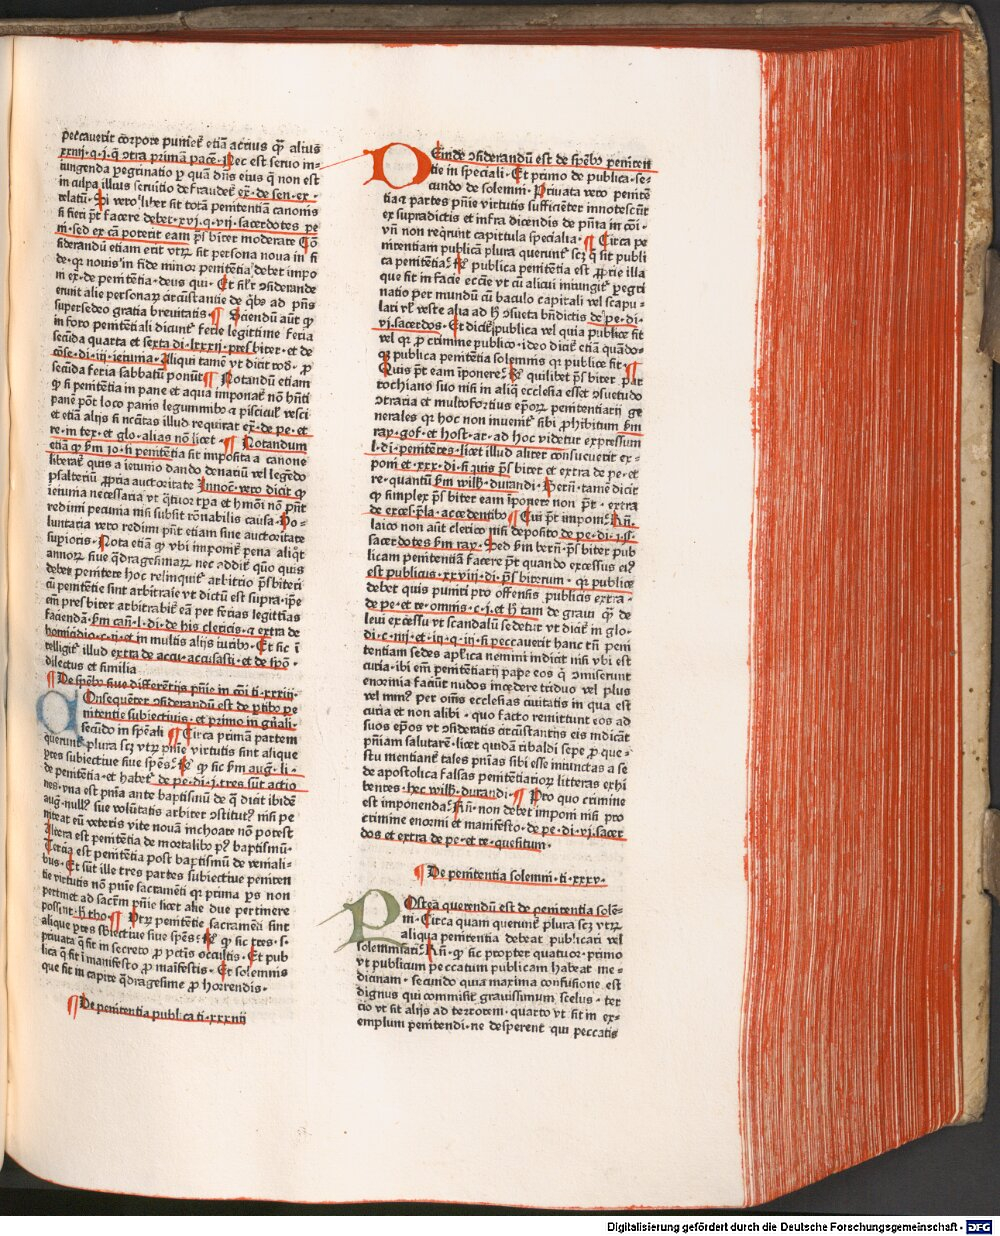 peccauerit corpore puniet᷑ etiã acrius q̃ alius
xxiiij·q·j·q̃ ↄtra primã pacẽ·Nec est seruo in-
iungenda peregrinatio per quã dñs eius q̃ non est
in culpa illius seruitio defraudet᷑ ex̃·de sen·ex·
relatũ·Si vero liber fit totã penitentiã canonis
si fieri põt facere debet·xvj·q·vij·sacerdotes pe
ni·sed ex cã poterit eam p̃sbiter moderare Cõ
siderandũ etiam erit vtrũ sit persona noua in fi
de·q̃ nouis in fide minor penitẽtia debet impo
ni ex·de penitẽtia·deus qui·Et sil'r ↄsiderande
erunt alie personarum circũstantie de q̃bus ad p̃ns
supersedeo gratia breuitatis ¶ Sciendũ aũt q̃
in foro penitẽtiali dicunt᷑ ferie legittime feria
secũda quarta et sexta di·lxxxij·presbiter·et de
cõse·di·iij·ieiunia·Aliqui tamẽ vt dicit rod·pro
secũda feria sabbatũ ponũt ¶ Notandũ etiam
q̃ si penitẽtia in pane et aqua imponat᷑ nõ hñti
panẽ põt loco panis legumimibus et pisciculis vesci
et etiã alijs si nccĩtas illud requirat ex̃·de pe·et
re·in tex·et glo·alias nõ licet· ¶ Notandum
etiã q̃ s̃m jo·si penitẽtia sit imposita a canone
liberat᷑ quis a ieiunio dando denariũ vel legẽdo
psalteriũ propria auctoritate Innoc̃·vero dicit q̃
ieiunia necessaria vt q̃tuor tp̃a et hmõi nõ põt
redimi pecunia nisi subsit rõnabilis causa·Uo-
luntaria vero redimi põt etiam sine auctoritate
supioris·Nota etiã q̃ vbi imponit᷑ pena aliq̃t
annorum siue q̃dragesimarum nec addit᷑ quo quis
debet penitere hoc relinquit᷑ arbitrio p̃sbiteri
cũ penitẽtie sint arbitrarie vt dictũ est supra·ip̃e
em̃ presbiter arbitrabit᷑ eã per ferias legittimas
faciendã·s̃m cañ·l·di·de his clericis·et extra de
homicidio·c·ij·et in multis alijs iuribus·Et sic ĩ
telligit᷑ illud extra de accu·accusasti·et de spõ·
dilectus et similia
¶ De sp̃ebus siue differẽtijs pñie in cõi ti·xxxiij·
COnsequẽter ↄsiderandũ est de ptibus pe
nitentie subiectiuis·et primo in gñali·
secũdo in spẽali ¶ Circa primã partem
querunt᷑ plura scz vtrũ pñie virtutis sint alique
ptes subiectiue siue spẽs? Rñ q̃ sic s̃m aug·li·
de penitẽtia·et habet᷑ de pe·di·j·tres sũt actio
nes·vna est pñia ante baptismũ de q̃ dicit ibidẽ
aug·null9 sue volũtatis arbiter ↄstitut9 nisi pe
niteat eũ veteris vite nouã inchoare nõ potest
Altera est penitẽtia de mortalibus p9 baptismũ·
Tercia est penitẽtia post baptismũ de veniali-
bus·Et sũt ille tres partes subiectiue peniten
tie virtutis nõ pñie sacramẽti q̃ prima ps non
pertinet ad sacrm̃ pñie licet alie due pertinere
possint·h̃ tho ¶ Vtrum penitẽtie sacramẽti sint
alique ptes subiectiue siue spẽs? Rñ q̃ sic tres·s·
priuata q̃ fit in secreto pro pctĩs occultis·Et pub
lica q̃ fit ĩ manifesto pro maĩfestis·Et solemnis
que fit in capite q̃dragesime pro horrendis·
¶ De penitentia publica ti·xxxiiij
DEinde ↄsiderandũ est de sp̃ebus peniten
tie in speciali·Et primo de publica·se-
cundo de solemni·Priuata vero penitẽ
tia et partes pñie virtutis sufficiẽter innotescũt
ex supradictis et infra dicendis de pñta in cõi·
vñ non reqrunt capittula specialia· ¶ Circa pe
nitentiam publicã plura querunt᷑ scz q̃ sit publi
ca penitẽtia? Rñ publica penitẽtia est proprie illa
que fit in facie ecclẽ vt cũ alicui iniungit᷑ pegri
natio per mundũ cũ baculo capitali vel scapu-
lari vl' veste alia ad h̃ ↄsueta bñdictis de pe·di·
vj·sacerdos·Et dicit᷑ publica vel quia publice fit
vel q̃ pro crimine publico·ideo dicit᷑ etiã quãdo-
q̃ publica penitẽtia solemnis q̃ publice fit· ¶
Quis põt eam ĩponere? Rñ quilibet p̃sbiter par
rochiano suo nisi in aliq̃ ecclesia esset ↄsuetudo
ↄtraria et multofortius ep̃orum penitentiarij ge
nerales q̃ hoc non inuenit᷑ sibi phibitum s̃m
ray·gof·et host·ar·ad hoc videtur expressum
l·di·penitẽtes·licet illud aliter consueuerit ex-
poni et·xxx·di·si quis p̃sbiter et extra de pe·et
re·quantũ s̃m wilh̃·durandi·Bern̄·tamẽ dicit
q̃ simplex p̃sbiter eam ĩponere non põt·extra
de exces·p̃la·accedentibus ¶ Cui põt imponi? Rñ·
laico non aũt clerico nisi deposito de pe·di·j·§·
sacerdotes s̃m ray·Sed s̃m bern̄·p̃sbiter pub
licam penitentiã facere põt quando excessus ei9
est publicus·xxviij·di·p̃sbiterum·q̃ publice
debet quis puniri pro offensis publicis extra·
de pe·et re·omnis·c·j·et h̃ tam de graui q̃ de
leui excessu vt scandalũ sedetur vt dicit᷑ in glo·
di·c·iiij·et in·q·iij·si peccauerit hanc tñ peni
tentiam sedes apl'ica nemini indicit nisi vbi est
curia·ibi em̃ penitẽtiarij pape eos q̃ ↄmiserunt
enormia faciũt nudos incedere triduo vel plus
vel min9 per oẽs ecclesias ciuitatis in qua est
curia et non alibi·quo facto remittunt eos ad
suos ep̃os vt ↄsideratis circũstantijs eis indicãt
pñiam salutarẽ·licet quidã ribaldi sepe pro que-
stu mentiant᷑ tales pñias sibi esse iniunctas a se
de apostolica falsas penitẽtiariorum litteras exhi
bentes·hec wilh̃·durandi· ¶ Pro quo crimine
est imponenda? Rñ·non debet imponi nisi pro
crimine enormi et manifesto·de pe·di·vj·sacer
dos et extra de pe·et re·quesitum·
¶ De penitentia solemni·ti·xxxv·
POstea querendũ est de penitentia solẽ-
ni·Circa quam querunt᷑ plura scz vtrũ
aliqua penitentia debeat publicari vel
solemnisari? Rñ·q̃ sic propter quatuor·primo
vt publicum peccatum publicam habeat me-
dicinam·secundo quia maxima confusione est
dignus qui commisit grauissimum scelus·ter
cio vt sit alijs ad terrorem·quarto vt sit in ex-
emplum penitendi·ne desperent qui peccatis
Digitalisierung gefördert durch die Deutsche Forschungsgemeinschaft - DFG